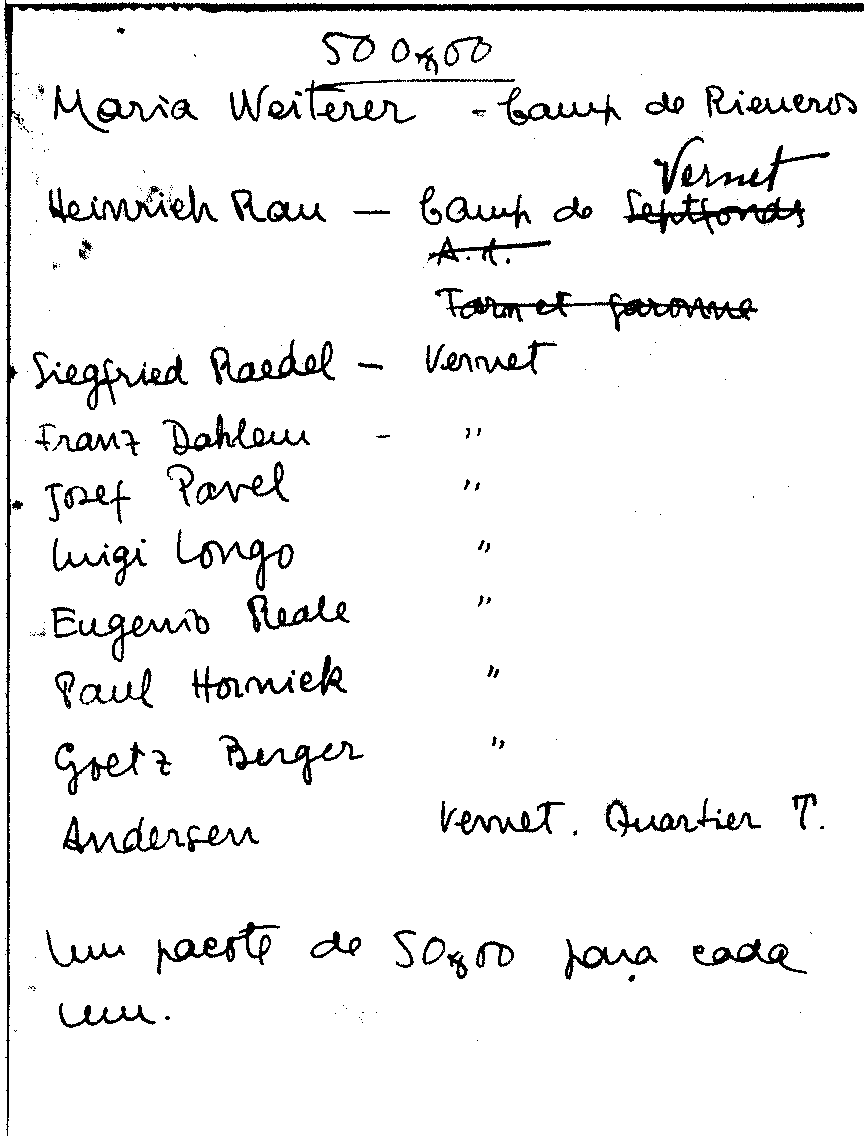 500$00
Maria Weiterer - Camp de Rieucros
Vernet
Heinrich Rau — Camp de Septfonds
A. t.
Tarn et garonne
Siegfried Raedel — Vernet
Franz Dahlem - "
Josef Pavel "
Luigi Longo "
Eugenio Reale "
Paul Hornick "
Goetz Berger "
Andersen Vernet. Quartier T.
Um pacote de 50$00 para cada
um.